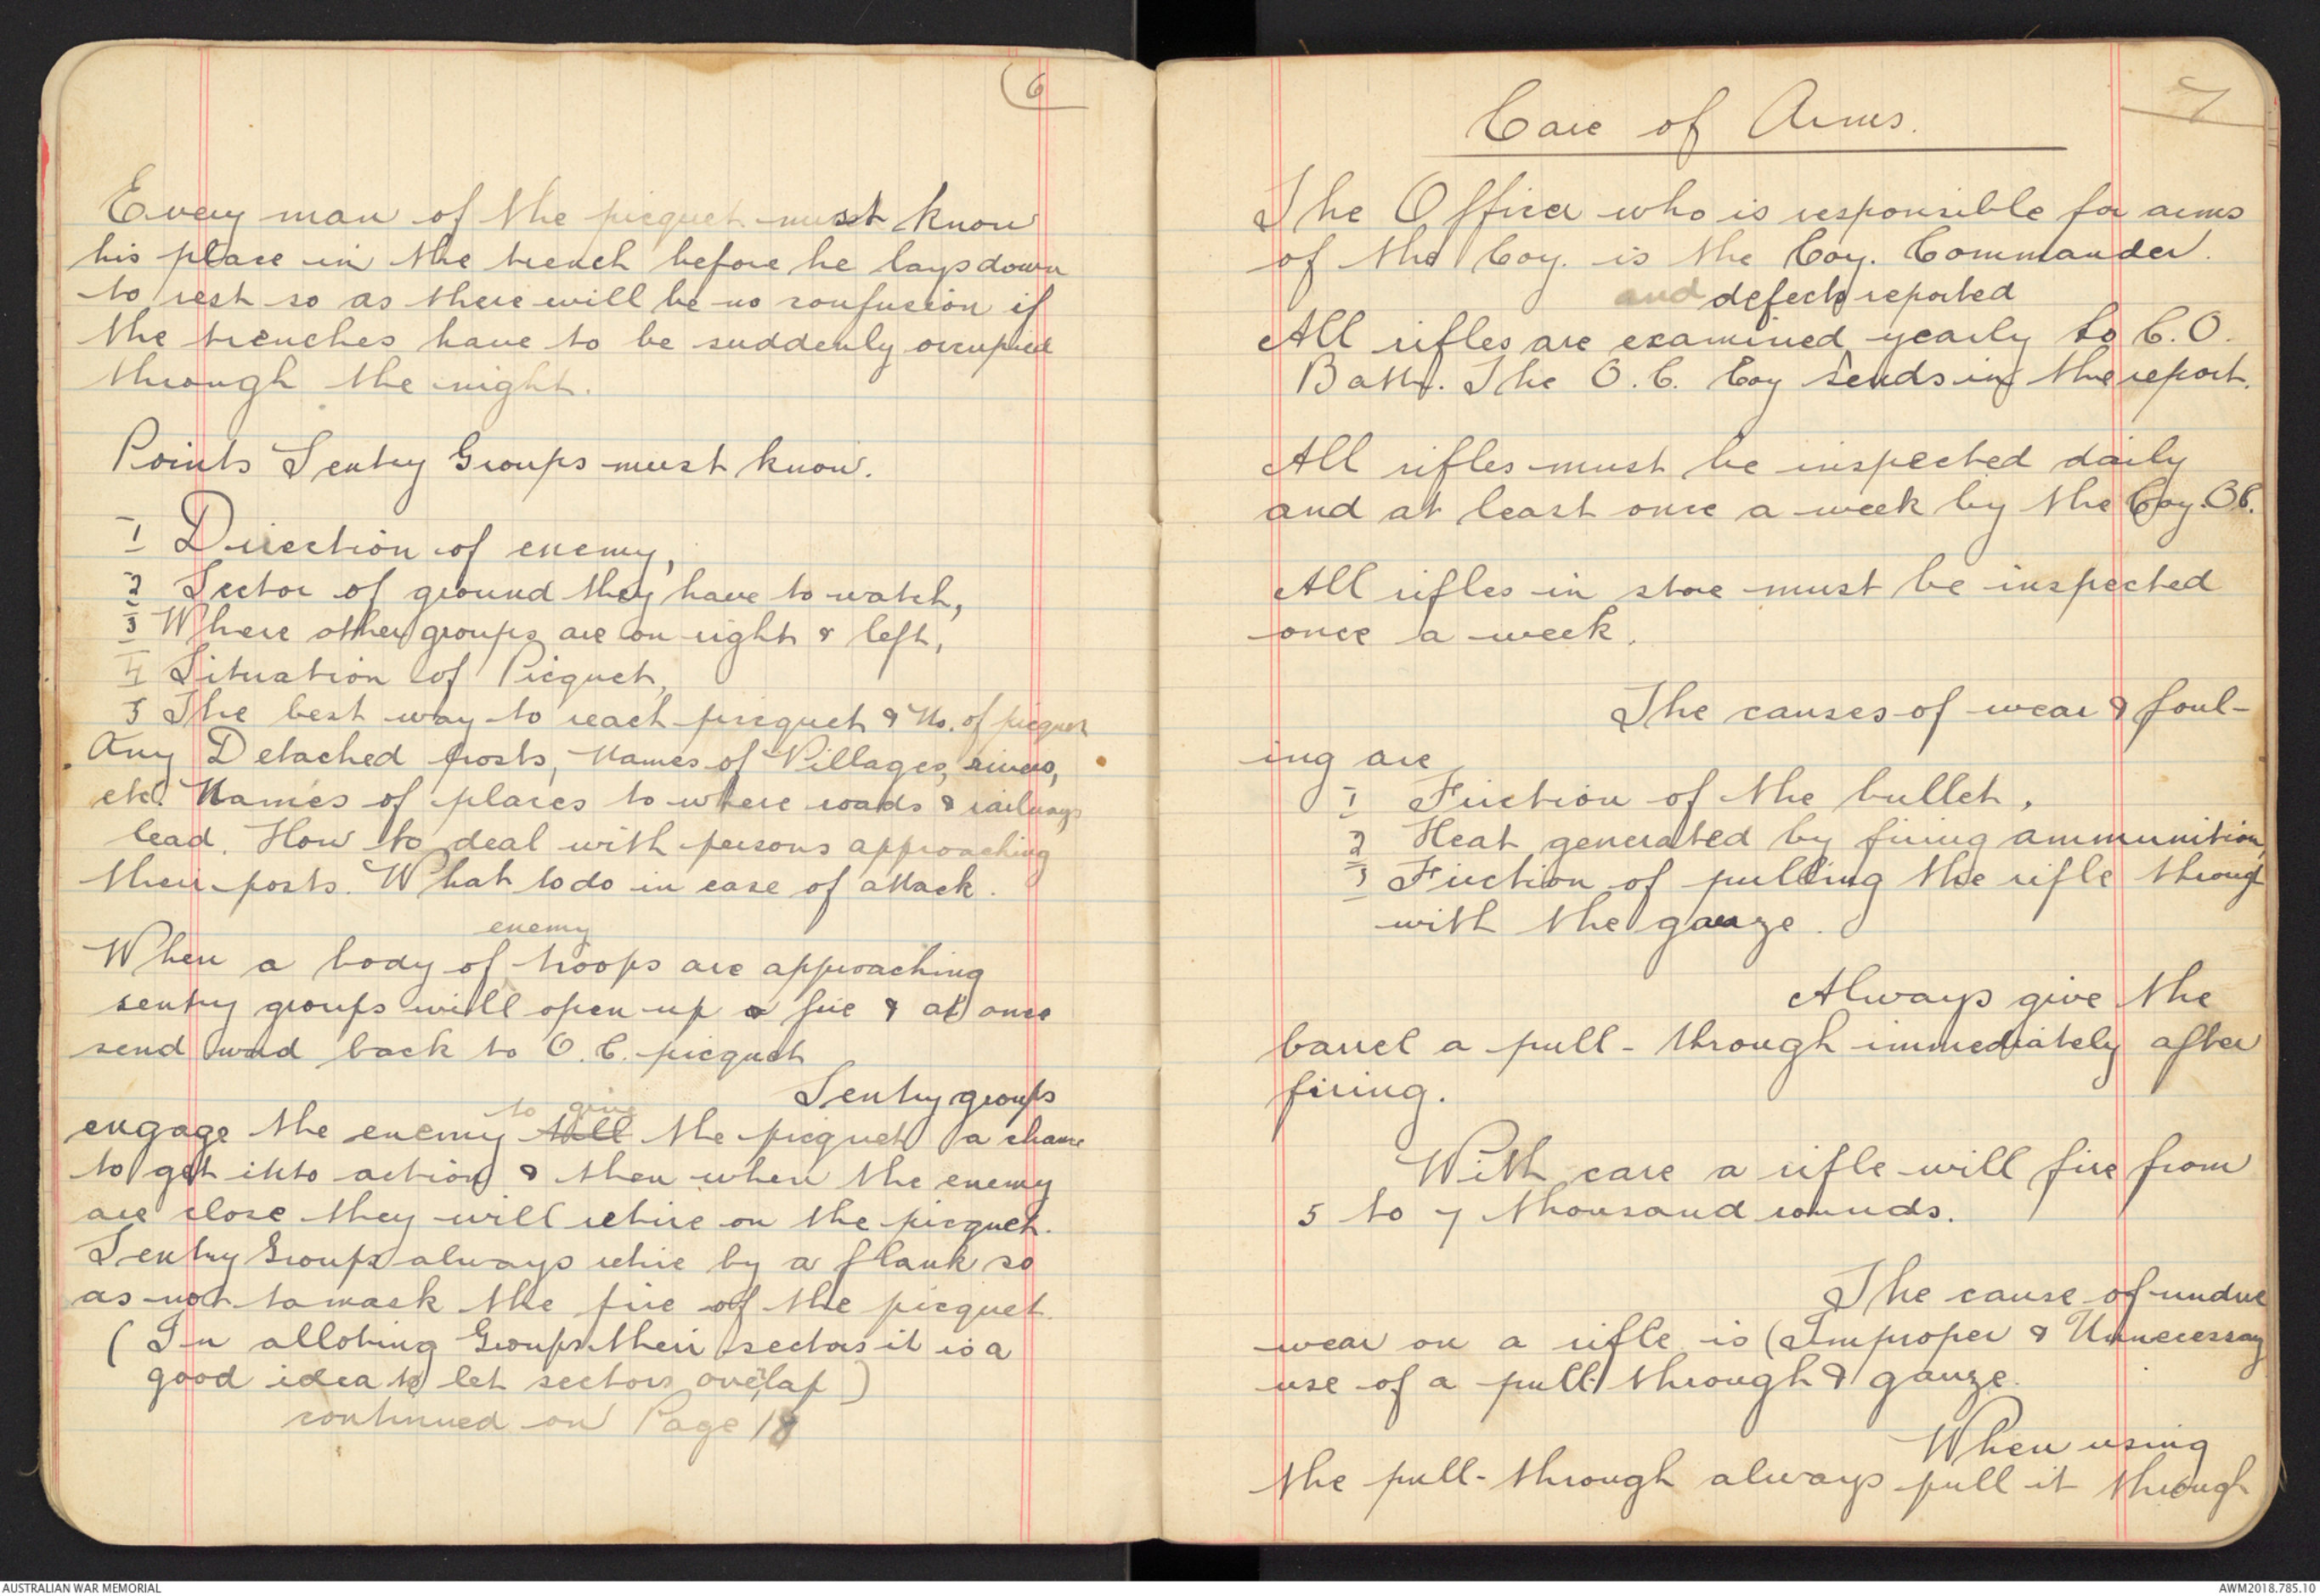 6
Every man of the picquet must know
his place in the trench before he lays down
to rest so as there will be no confusion if
the trenches have to be suddenly occupied
through the night.
Points Sentry Groups must know.
1 Direction of enemy,
2 Sector of ground they have to watch,
3 Where other groups are on right & left,
4 Situation of Picquet,
5 The best way to reach picquet & No. of picquet
Any Detached posts, Names of Villages, rivers,
etc. Names of places to where roads & railways
lead. How to deal with persons approaching
their posts. What to do in case of attack.
enemy
When a body of troops are approaching
sentry groups will open up a fire & at once
send word back to O.C. picquet
Sentry groups
to give
engage the enemy till the picquet a chance
to get into action & then when the enemy
are close they will retire on the picquet.
Sentry Groups always retire by a flank so
as not to mask the fire of the picquet.
(In alloting Groups their sectors it is a
good idea to let sectors overlap)
continued on Page 18
7
Care of Arms.
The Officer who is responsible for arms
of the Coy. is the Coy. Commander.
and defects reported
All rifles are examined yearly to C.O.
Battn. The O.C. Coy sends in the report.
All rifles must be inspected daily
and at least once a week by the Coy. O.C.
All rifles in store must be inspected
once a week.
The causes of wear & foul-
ing are
1 Friction of the bullet,
2 Heat generated by firing ammunition,
3 Friction of pulling the rifle through
with the gauze.
Always give the
barrel a pull-through immediately after
firing.
With care a rifle will fire from
5 to 7 thousand rounds.
The cause of undue
wear on a rifle is (Improper & Unnecessary
use of a pull-through & gauze.
When using
the pull-through always pull it through
AUSTRALIAN WAR MEMORIAL
AWM2018.785.10